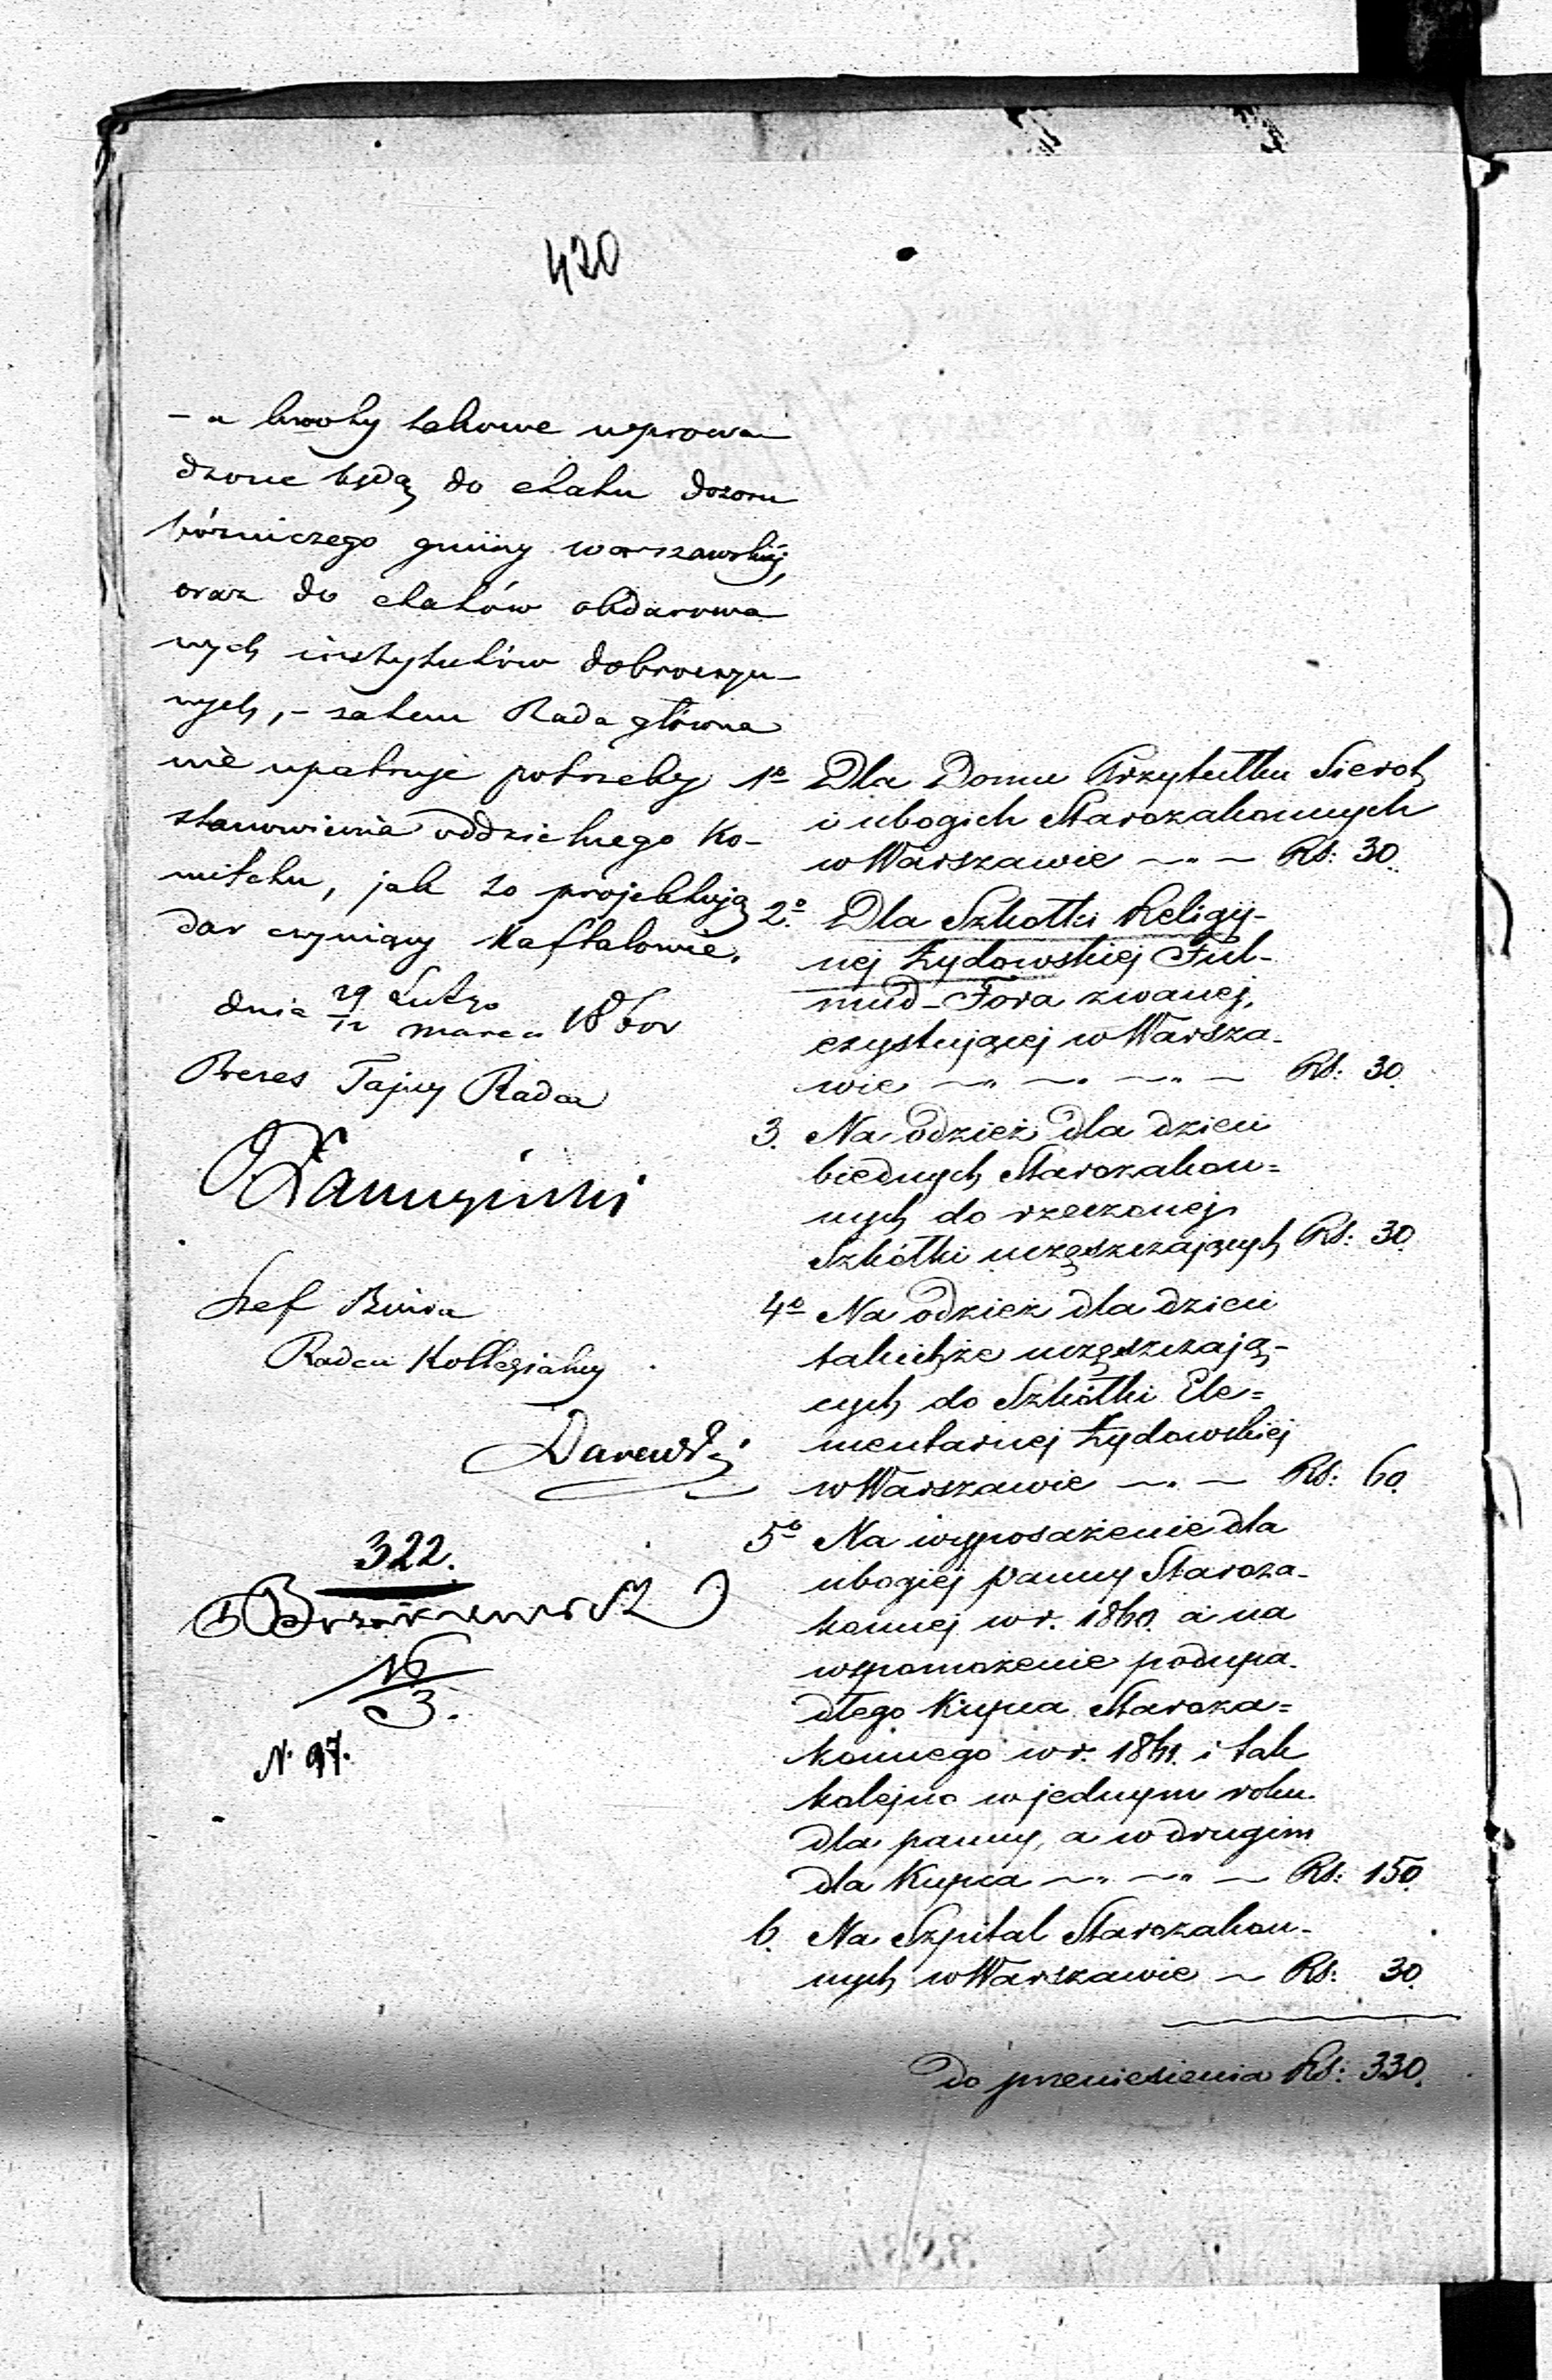 420
– a kwoty takowe wprowa
dzone będą do etatu dozoru
bóżniczego gminy warszawskiéj,
oraz do etatów obdarowa
nych instytutów dobroczyn-
nych, – zatem Rada główna
nie upatruje potrzeby
stanowienia oddzielnego Ko-
mitetu, jak to projektują
dar czyniący Naftalowie.
dnia 29 Lutego
12 Marca 1860 r
Prezes Tajny Radca
Szef Biura
Radca Kollegialny
322.
16
3.
N. 97.
1o Dla Domu Przytułku Sierot
i ubogich Starozakonnych
w Warszawie — " — Rs: 30.
2o Dla Szkołki Religij-
nej Żydowskiej Tal-
mud-Tora zwanej,
exystującej w Warsza-
wie — " — " — " — Rs: 30.
3. Na odzież dla dzieci
biednych Starozakon=
nych do rzeczonej
Szkółki uczęszczających Rs: 30.
4o Na odzież dla dzieci
takichże uczęszczają-
cych do Szkółki Ele=
mentarnej Żydowskiej
w Warszawie — " — Rs: 60.
5o Na wyposażenie dla
ubogiej panny Staroza-
konnej w r. 1860. a na
wspomożenie podupa-
dłego Kupca Staroza=
konnego w r. 1861. i tak
kolejno w jednym roku
dla panny, a w drugim
dla Kupca — " — " — Rs: 150.
6. Na Szpital Starozakon-
nych w Warszawie — Rs: 30.
do przeniesienia Rs: 330.